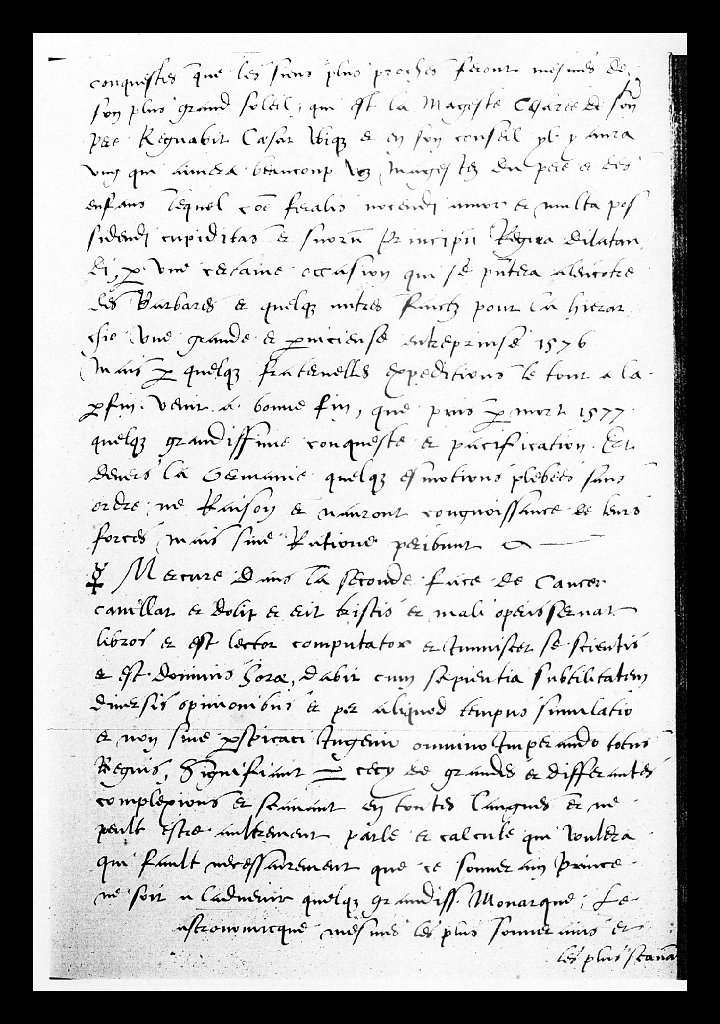 conquestes que les siens plus proches feront mesmes de
son plus grand soleil, qui est la Mageste Charle de son
pere Regnabit Cæsar et en son conseil yl y aura
ung qui aimera beaucoup voz Magestez du pere et des
enfans lequel feralis nocendi amor et multa pos
sidendi cupiditas et suorũ Principũ Regna dilatan
di, p̱ une certaine occasion qui se a lencotre
des Barbares et quelqz autres sainctz pour la hierar
chie une grande et p̱nicieuse entreprinse 1576
Mais p̱ quelqz fraternelles expeditions le tout a la
p̱fin venir a bonne fin, que puis p̱ mort 1577
quelqz grandissime conqueste et pacification. Et
devers la Germanie quelqz esmotions plebees sans
ordre ne Raison et nauront congnoissance de leurs
forces mais sine Ratione peribunt
☿ Mercure dans la seconde face de Cancer
cavillat et dolis et erit tristis et mali operis servat
libros et est lector computator et Inmiscet se scientiis
et est dominus horæ, dabit cum sapientia subtilitatem
diversis opinionibus et per aliquod tempus simulatio
et non sine p̱spicaci Ingenio omnino Imperando totus
Regnis, Signifiant cecy de grandes et differantes
complexions et scavant en toutes langues et ne
peult estre aultrement parle et calcule qui vouldra
qui fault necessairement que ce souverain Prince
ne soit a ladvenir quelqz grandiss. Monarque, Le
astronomicque mesmes les plus souverains et
les plus scava